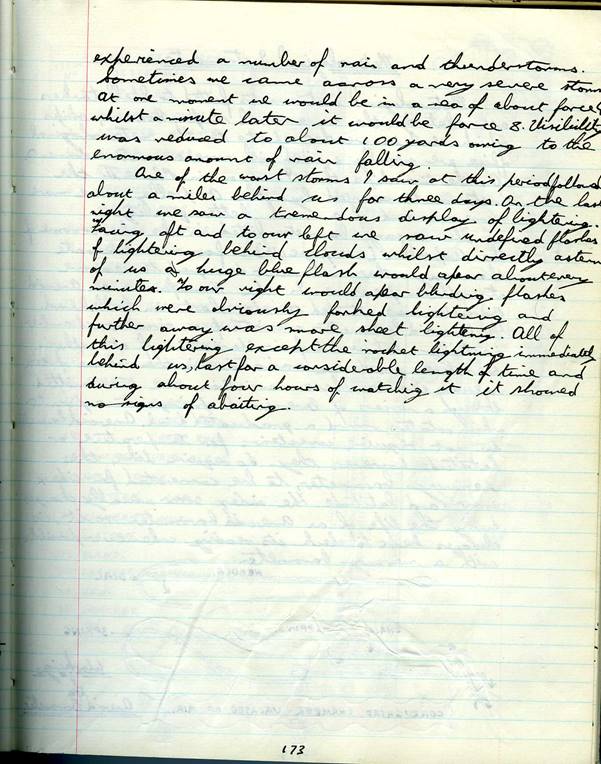 experienced a number of rain and thunderstorms.
Sometimes we came across a very severe storm
At one moment we would be in a sea of about force 4
whilst a minute later it would be force 8. Visibility
was reduced to about 100 yards owing to the
enormous amount of rain falling.
One of the worst storms I saw at this period followed
about a miles behind us for three days. On the last
night we saw a tremendous display of lightering.
Facing aft and to our left we saw undefined flashes
of lightering behind clouds whilst directly astern
of us a huge blue flash would apear about every
minutes. To our right would apear blinding flashes
which were obviously forked lightering and
further away was more sheet lightering. All of
this lightering except the rocket lightning immediately
behind us, last for a considerable length of time and
during about four hours of watching it it showed
no signs of abaiting.
173